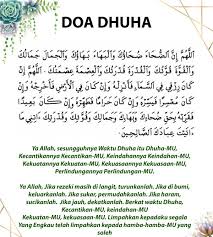 DOA DHUHA
اَللّٰهُمَّ اِنَّ الضُّحَآءَ ضُحَاؤُكَ وَالْبَهَاءَ بَهَاؤُكَ وَالْجَمَالَ جَمَالُكَ
وَالْقُوَّةَ قُوَّتُكَ وَالْقُدْرَةَ قُدْرَتُكَ وَالْعِصْمَةَ عِصْمَتُكَ اَللّٰهُمَّ اِنْ
كَانَ رِزْقِى فِى السَّمَآءِ فَأَنْزِلْهُ وَاِنْ كَانَ فِى اْلاَرْضِ فَأَخْرِجْهُ وَاِنْ
كَانَ مُعَسَّرًا فَيَسِّرْهُ وَاِنْ كَانَ حَرَامًا فَطَهِّرْهُ وَاِنْ كَانَ بَعِيْدًا
فَقَرِّبْهُ بِحَقِّ ضُحَائِكَ وَبَهَائِكَ وَجَمَالِكَ وَقُوَّتِكَ وَقُدْرَتِكَ آتِنِى مَا
اَتَيْتَ عِبَادَكَ الصَّالِحِيْنَ
Ya Allah, sesungguhnya Waktu Dhuha itu Dhuha-MU,
Kecantikannya Kecantikan-MU, Keindahannya Keindahan-MU,
Kekuatannya Kekuatan-MU, Kekuasaannya Kekuasaan-MU,
Perlindungannya Perlindungan-MU.
Ya Allah, Jika rezeki masih di langit, turunkanlah. Jika di bumi,
keluarkanlah. Jika sukar, permudahkanlah. Jika haram,
sucikanlah. Jika jauh, dekatkanlah. Berkat waktu Dhuha,
Kecantikan-MU, keindahan-MU
Kekuatan-MU, kekuasaan-MU. Limpahkan kepadaku segala
Yang Engkau telah limpahkan kepada hamba-hamba-MU yang
soleh